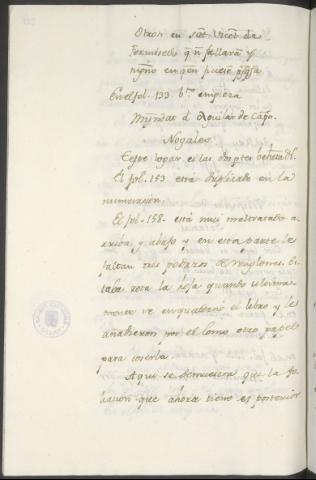 Otrosi en Sant Vicent de
fallaron y
En el fol. 133. bto empieza
Merindat d Aguilar de Campo
Nogales
Este logar es las dos ptes behetria
El fol. 153 está duplicado en la
numeracion.
El fol. 158. está mui maltratado a-
rriba y abajo y en esta parte le
faltan tres pedazos de renglones. Es
taba rota la hoja quando ultima-
mente se enquadernó el libro y le
añadieron por el lomo otro papel
para coserla.
Aqui se demuestra que la fo-
liacion que ahora tiene es posterior